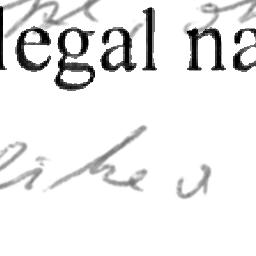 legal na
like a